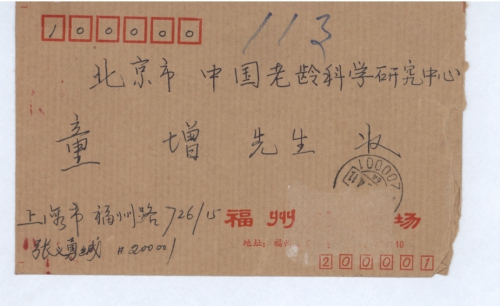 100000
113
北京市 中国老龄科学研究中心
童 增 先生 收
上海市福州路726/15
福州 场
地址：福州 10
#200001
200001